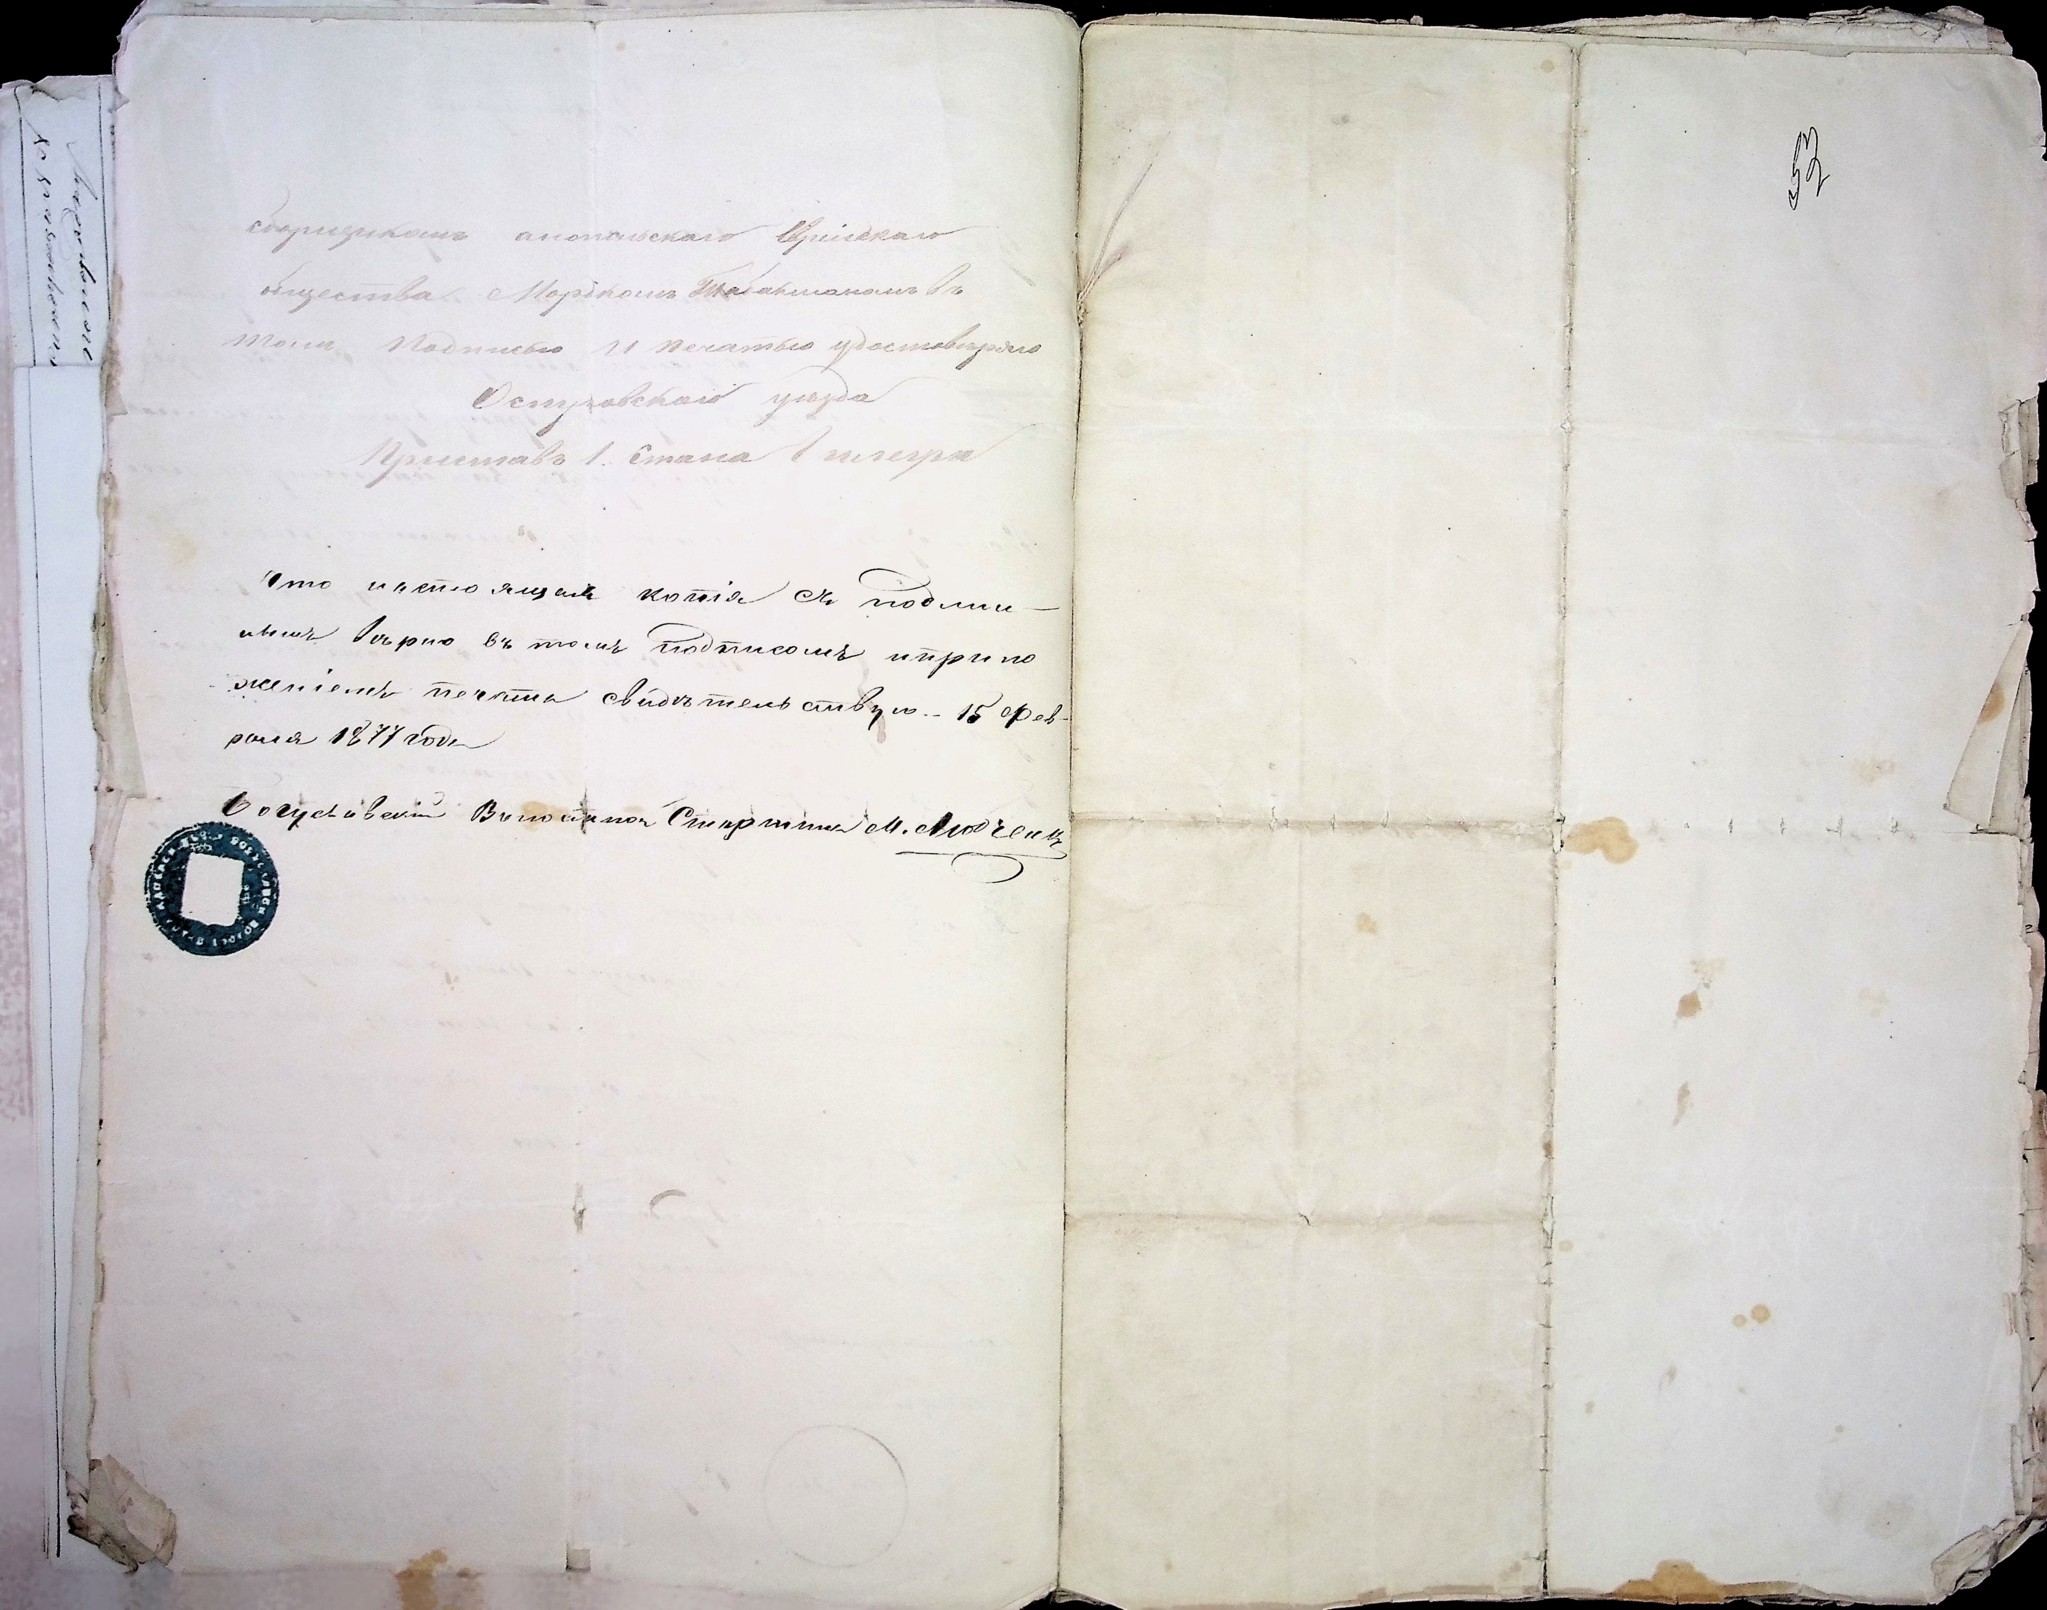 сборщикомъ анопольскаго Еврейскаго
общества Мордкомъ Табакманомъ въ
томъ Подписью И печатью удостовѣряю
Острожскаго уѣзда
Приставъ 1. Стана
Что настоящая копія съ подлин-
нымъ вѣрно въ томъ подписомъ иприло
женіемъ печати свидѣтельствую. 15 Фев-
раля 1877 года
Богуславский Волостной Старшина М.
53